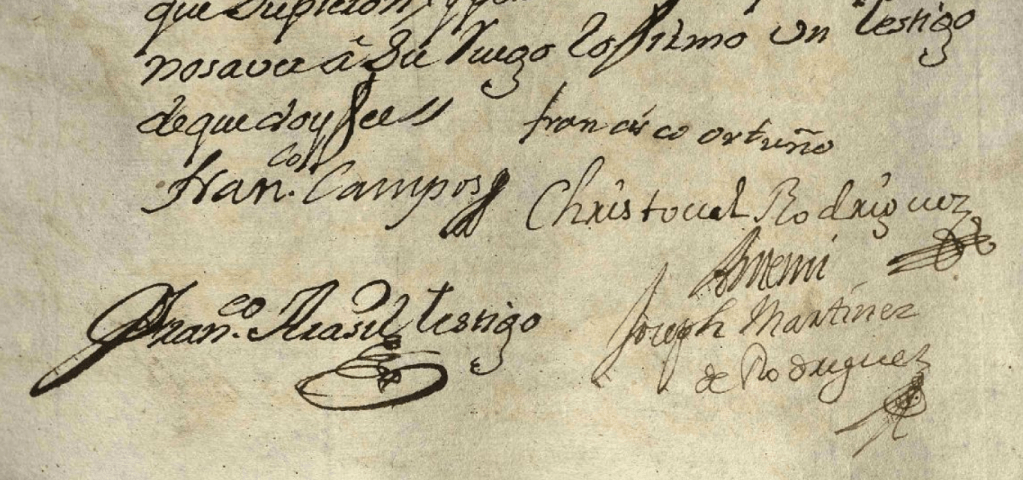 que supieron, y
no saver â Su Ruego lo firmo un testigo
de que doy fee //
francisco ortuño
Fran.co Campos
Christoual Rodriguez
Antemi
Fran.co testigo
Joseph Martinez
de Rodriguez